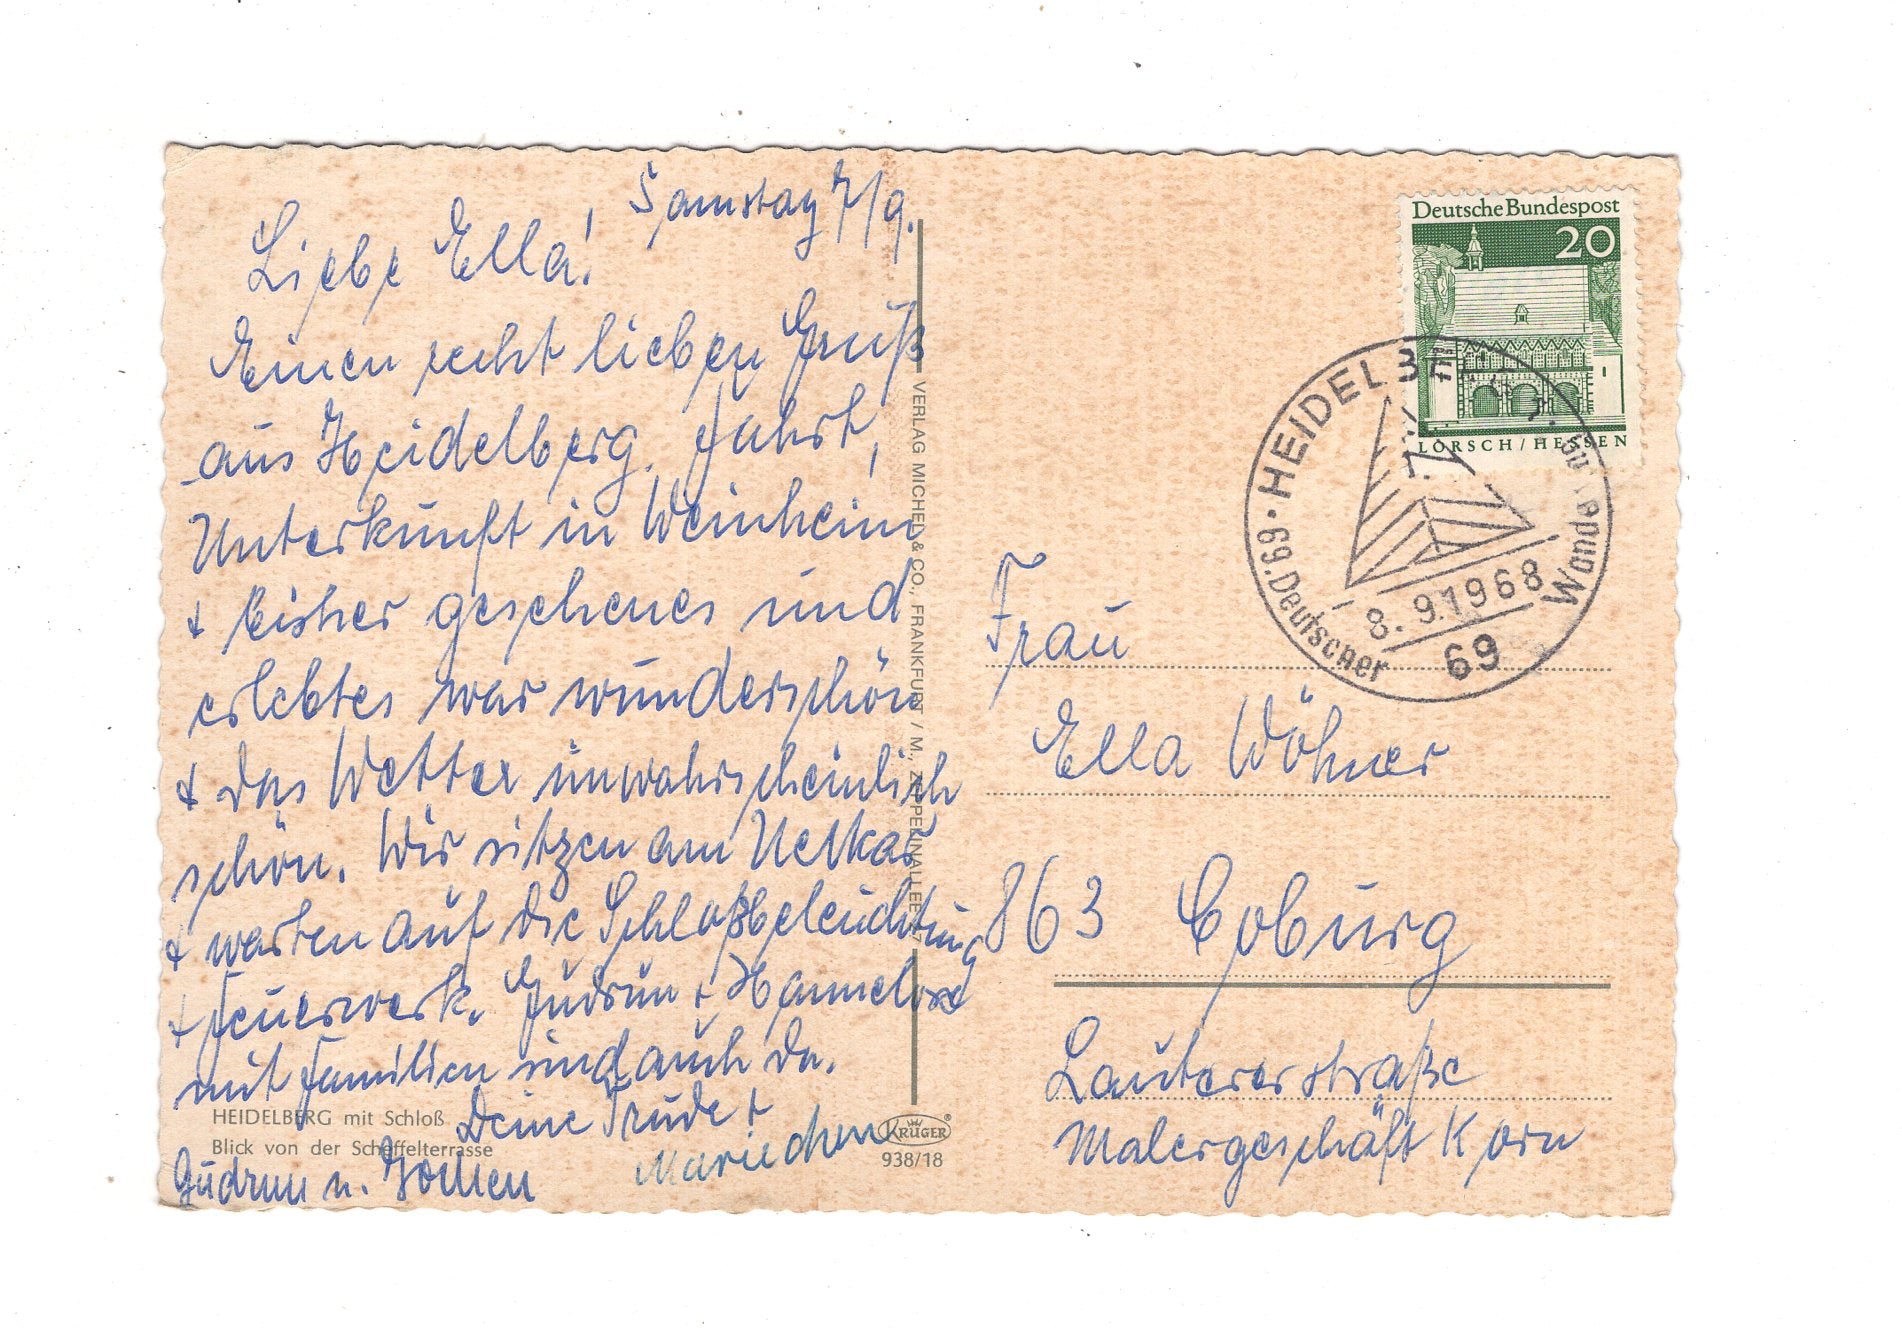 Samstag 7/9.
Liebe Ella!
Einen recht lieben Gruß
aus Heidelberg. Fahrt,
Unterkunft in Weinheim
+ bisher gesehenes und
erlebtes war wunderschön
+ das Wetter unwahrscheinlich
schön. Wir sitzen am Neckar
+ warten auf die Schloßbeleuchtung
+ Feuerwerk. Gudrun + Hannelore
mit Familien sind auch da.
Deine Trude +
Mariechen
Gudrun u. Jochen
HEIDELBERG mit Schloß
Blick von der Scheffelterrasse
VERLAG MICHEL & CO., FRANKFURT / M., ZEPPELINALLEE
KRÜGER
938/18
Deutsche Bundespost
20
LORSCH/HESSEN
HEIDELBERG
69. Deutscher Wandertag
8.9.1968
69
Frau
Ella Wöhner
863 Coburg
Lautererstraße
Malergeschäft Korn